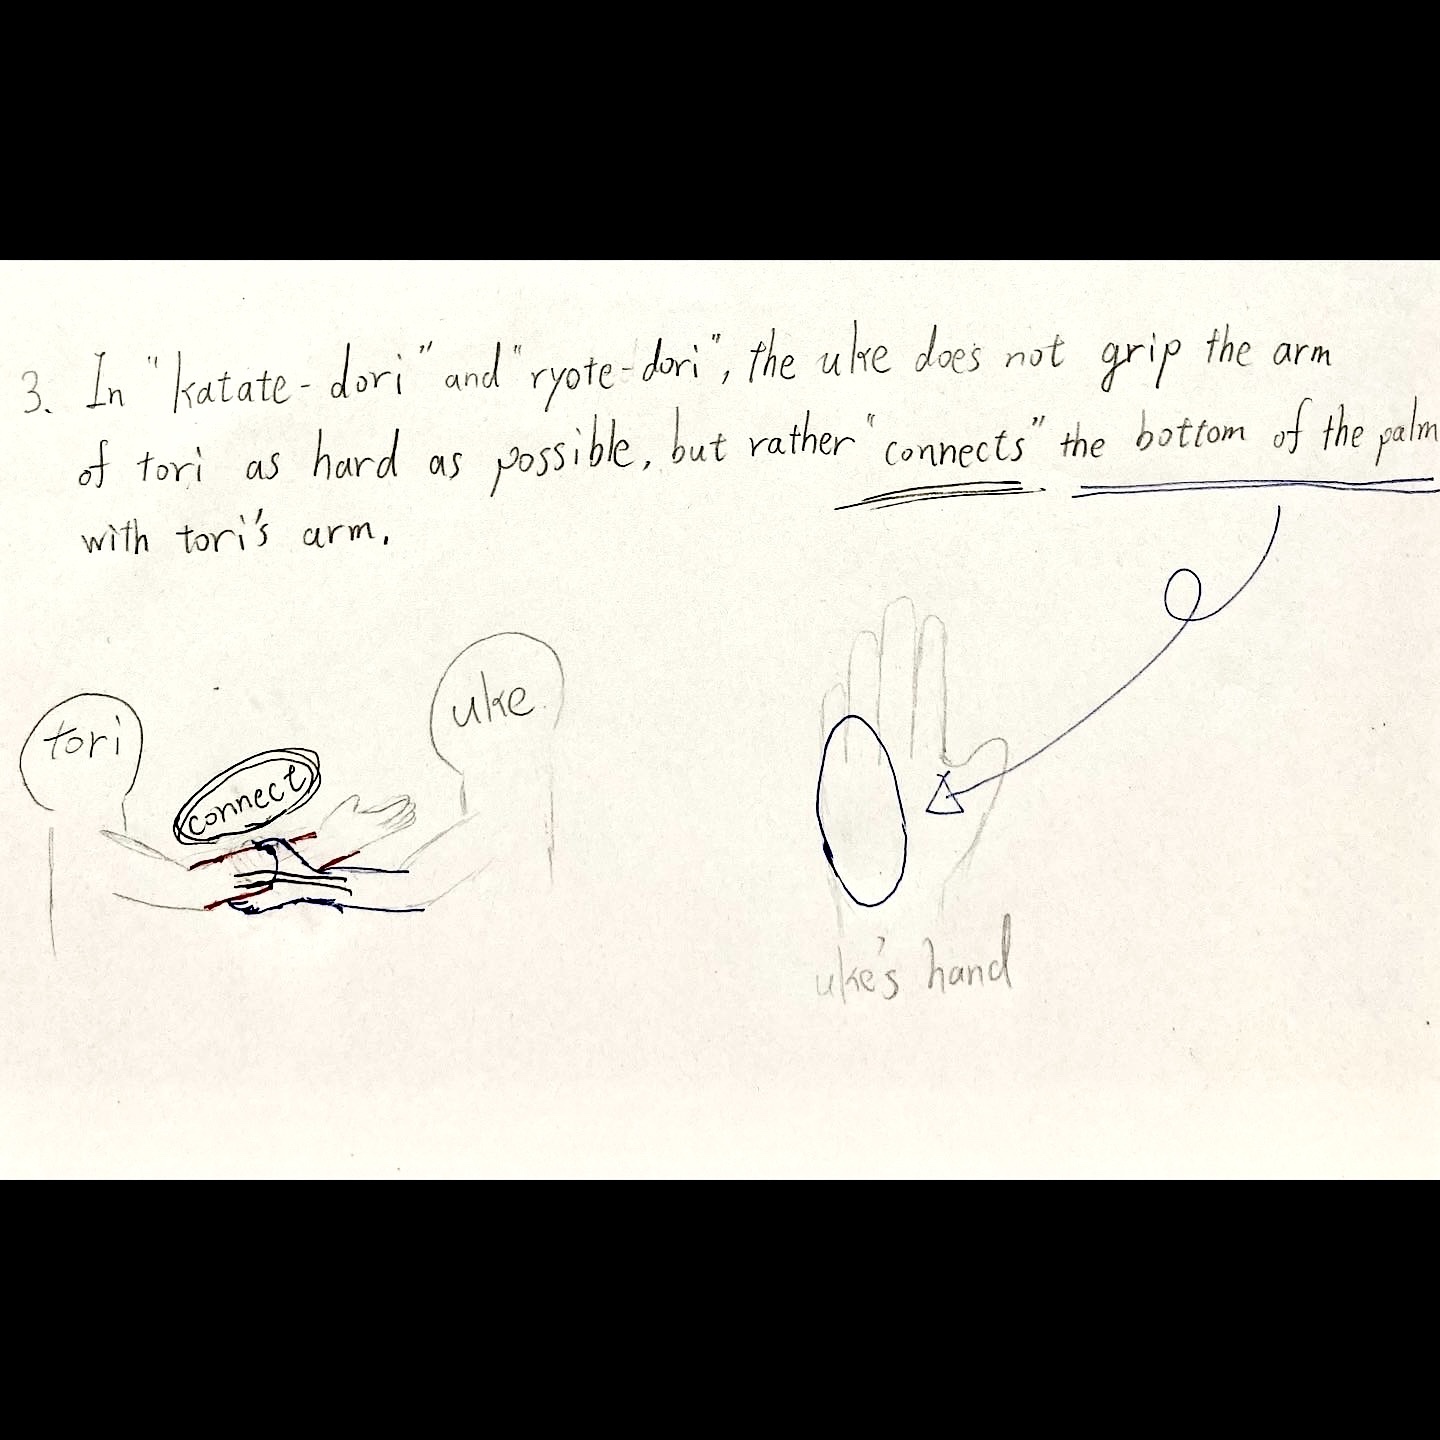 3. In "katate-dori" and "ryote-dori", the uke does not grip the arm
of tori as hard as possible, but rather "connects" the bottom of the palm
with tori's arm.
tori
connect
uke
uke's hand